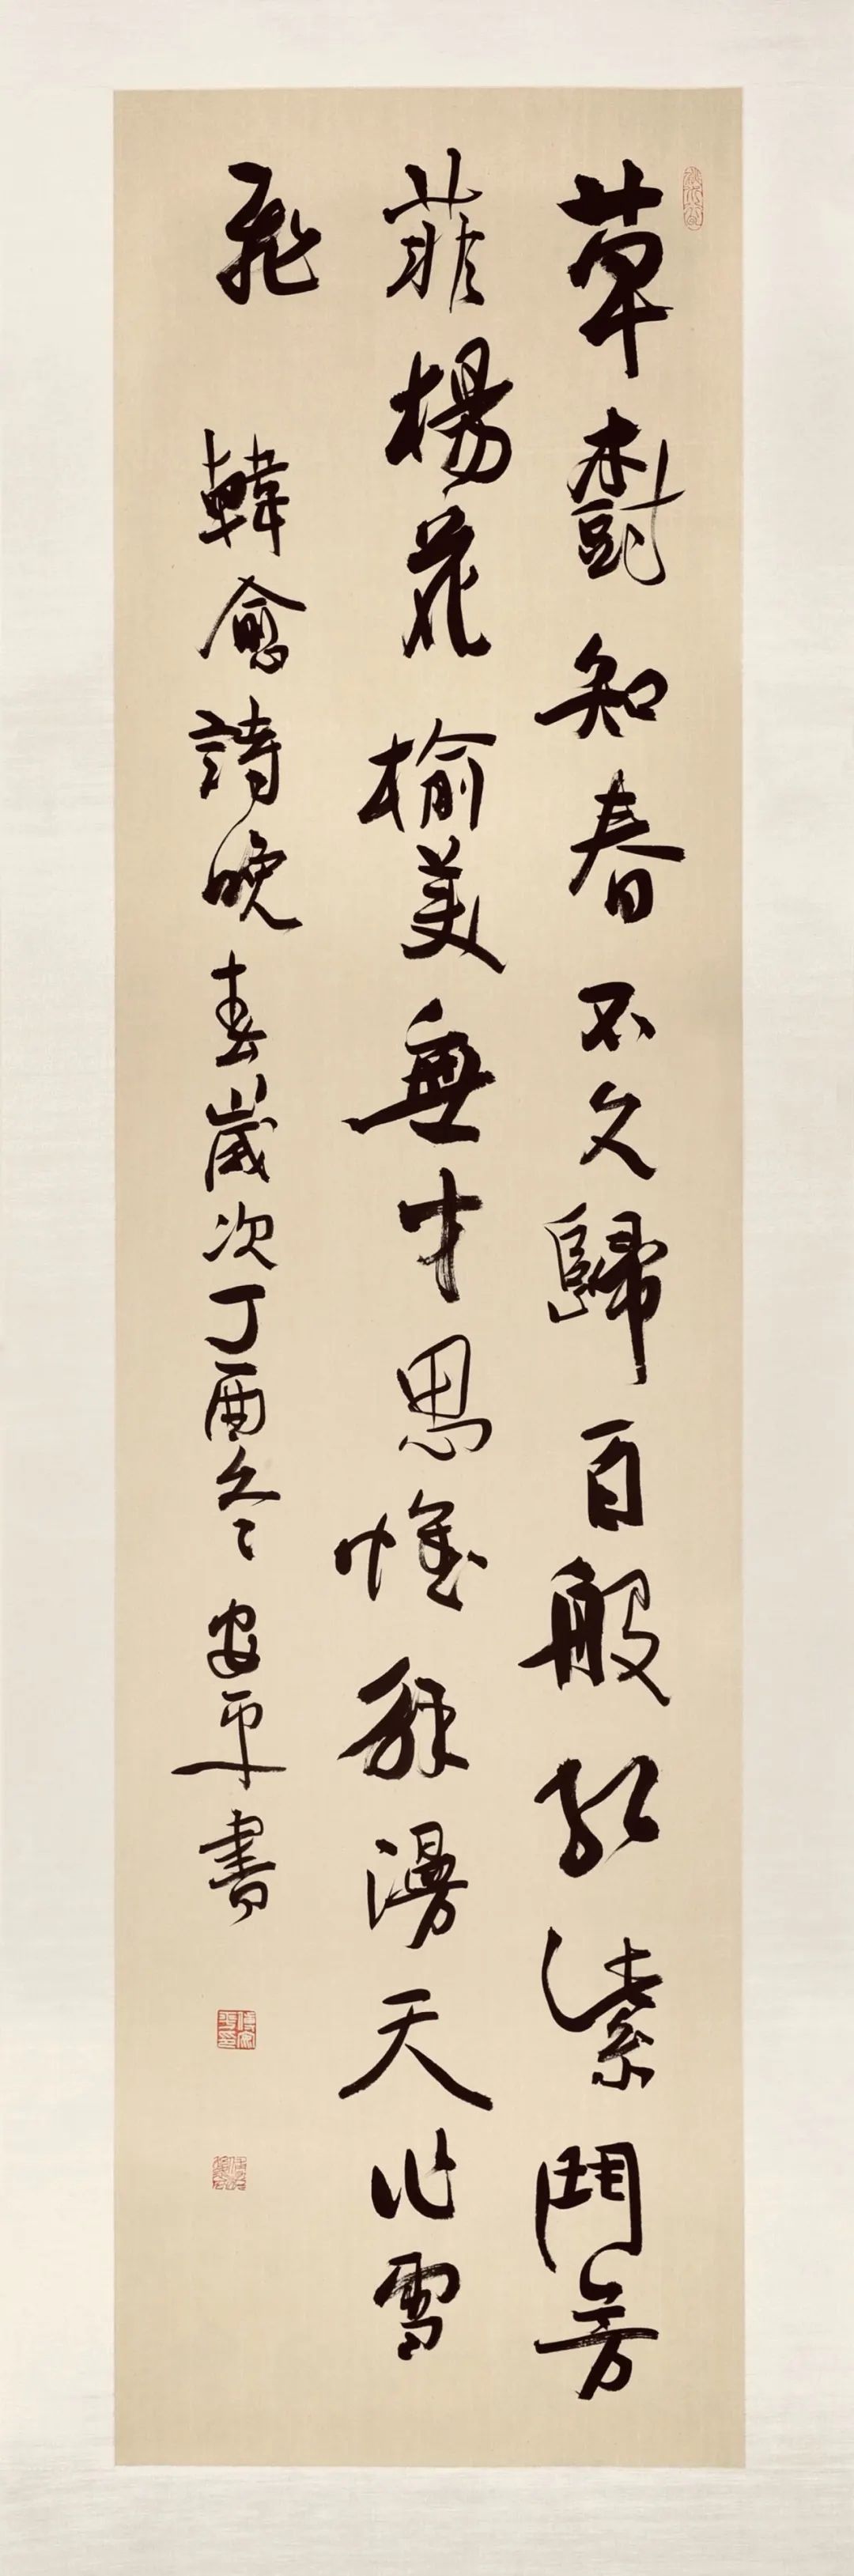 草樹知春不久歸百般紅紫鬥芳
菲楊花榆莢無才思惟解漫天作雪
飛 韓愈詩晚春歲次丁酉冬安平書